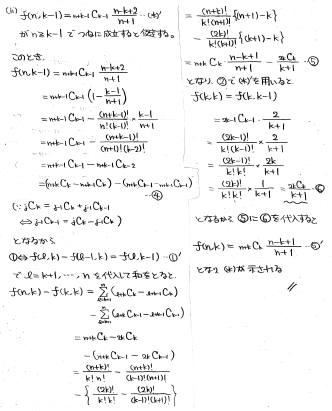 (ii) f(n,k-1) = n+k-1Ck-1 (n-k+2)/(n+1) …(*)'
が n≧k-1 でつねに成立すると仮定する。
このとき、
f(n,k-1) = n+k-1Ck-1 (n-k+2)/(n+1)
= n+k-1Ck-1 (1 - (k-1)/(n+1))
= n+k-1Ck-1 - (n+k-1)!/(n!(k-1)!) × (k-1)/(n+1)
= n+k-1Ck-1 - (n+k-1)!/((n+1)!(k-2)!)
= n+k-1Ck-1 - n+k-1Ck-2
= (n+kCk - n+k-1Ck) - (n+kCk-1 - n+k-1Ck-1)
…④
(∵ jCk = j-1Ck + j-1Ck-1
⇔ j-1Ck-1 = jCk - j-1Ck)
となるから
①⇔ f(l,k) - f(l-1,k) = f(l,k-1) …①'
で l=k+1,…,n を代入して和をとると、
f(n,k) - f(k,k) = Σ(l+kCk - l+k-1Ck)
- Σ(l+kCk-1 - l+k-1Ck-1)
= n+kCk - 2kCk
- (n+kCk-1 - 2kCk-1)
= (n+k)!/(k!n!) - (n+k)!/((k-1)!(n+1)!)
- { (2k)!/(k!k!) - (2k)!/((k-1)!(k+1)!) }
= (n+k)!/(k!(n+1)!) {(n+1)-k}
- (2k)!/(k!(k+1)!) {(k+1)-k}
= n+kCk (n-k+1)/(n+1) - 2kCk/(k+1) …⑤
となり、②で(*)'を用いると
f(k,k) = f(k,k-1)
= 2k-1Ck-1 · 2/(k+1)
= (2k-1)!/(k!(k-1)!) × 2/(k+1)
= (2k-1)!/(k!k!) × 2k/(k+1)
= (2k)!/(k!k!) × 1/(k+1) = 2kCk/(k+1) …⑥
となるから ⑤に⑥を代入すると
f(n,k) = n+kCk (n-k+1)/(n+1) …⑤'
となり (*)が示される
//